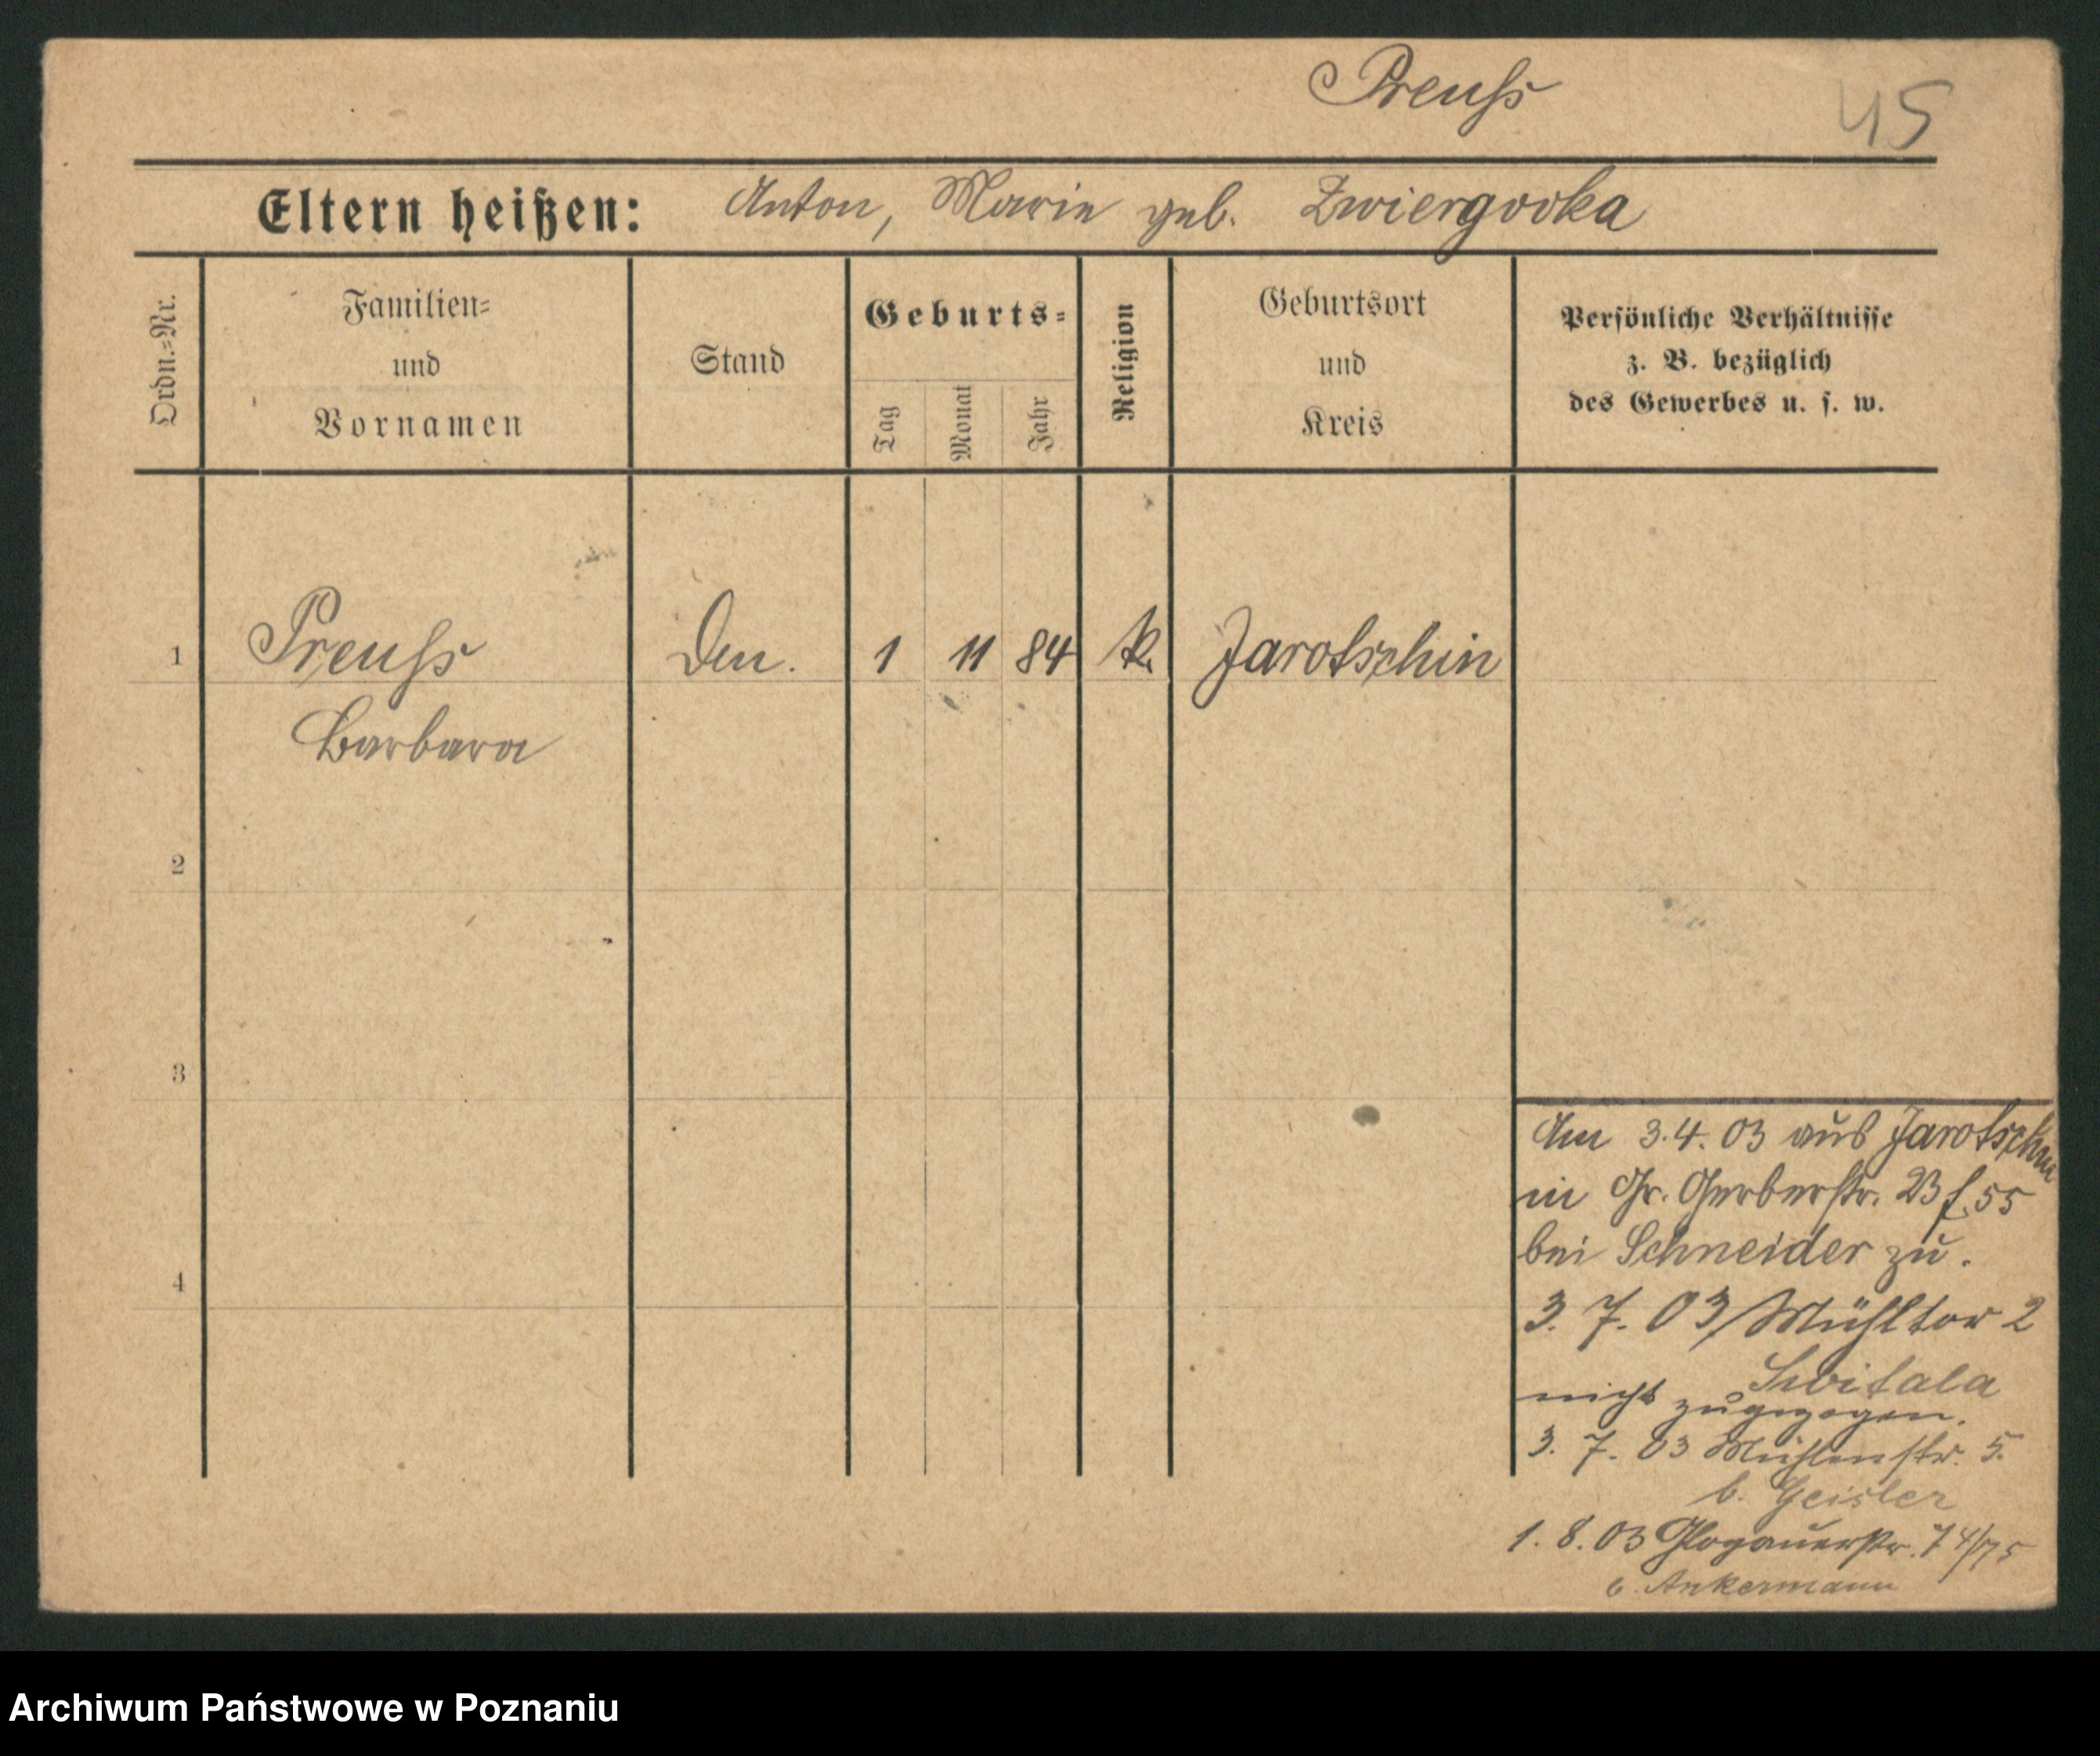 Preuß
45
Eltern heißen: Anton, Marie geb. Zwiergocka
Ordn.=Nr.
Familien=
und
Vornamen
Stand
Geburts=
Tag
Monat
Jahr
Religion
Geburtsort
und
Kreis
Persönliche Verhältnisse
z. B. bezüglich
des Gewerbes u. s. w.
1 Preuß 1 11 84 k. Jarotschin
Barbara
2
3
4
Am 3.4.03 aus Jarotschin
in Gr. Gerberstr. 23 f. 55
bei Schneider zu.
3. 7. 03 Mühltor 2
Switala
nicht zugezogen.
3. 7. 03 Mühlenstr. 5.
b. Geisler
1. 8. 03 Glogauerstr. 74/75
b. Ankermann
Archiwum Państwowe w Poznaniu